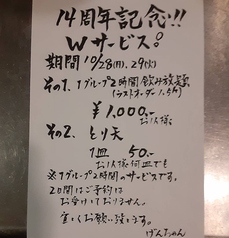 14周年記念!!
Wサービス。
期間 10/28(月)、29(火)
その1、1グループ2時間 飲み放題
(ラストオーダー1.5h)
¥1,000.-
お1人様
その2、とり天
1皿 50.-
お1人様何皿でも
※1グループ2時間のサービスです。
2日間はご予約は
お受けしておりません。
宜しくお願い致します。
げんちゃん